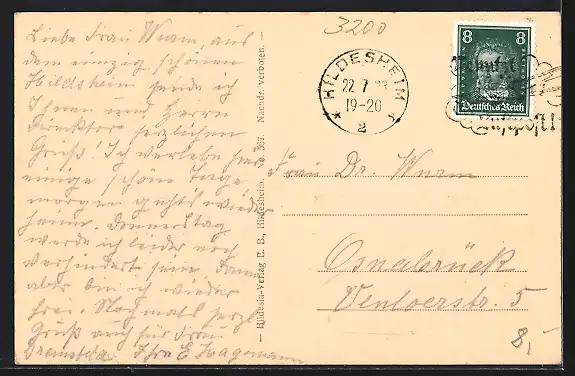 3200
Liebe Frau Wurm, aus
dem einzig schönen
Hildesheim sende ich
Ihnen und Herrn
Direktor herzlichen
Gruß! Ich verlebe hier
einige schöne Tage
morgen gehts wieder
heim. Donnerstag
werde ich leider noch
verhindert sein, dann
aber bin ich wieder
frei. Nochmals herzl.
Gruß auch für Frau
Ihre E. Hagemann
— Hildesia-Verlag E. B., Hildesheim. No. 367. Nachdr. verboten. —
HILDESHEIM
22 7
19-20
* 2 *
8 8
Deutsches Reich
Benutzt
die
Luftpost!
Frau Dr. Wurm
Osnabrück
Ventoerstr. 5
8,-